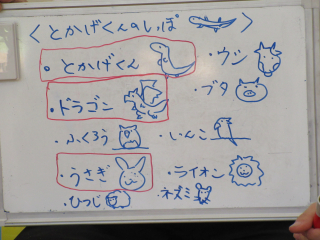 ＜とかげくんのしっぽ＞
・とかげくん
・ウシ
・ドラゴン
・ブタ
・ふくろう
・いんこ
・うさぎ
・ライオン
・ひつじ
・ネズミ